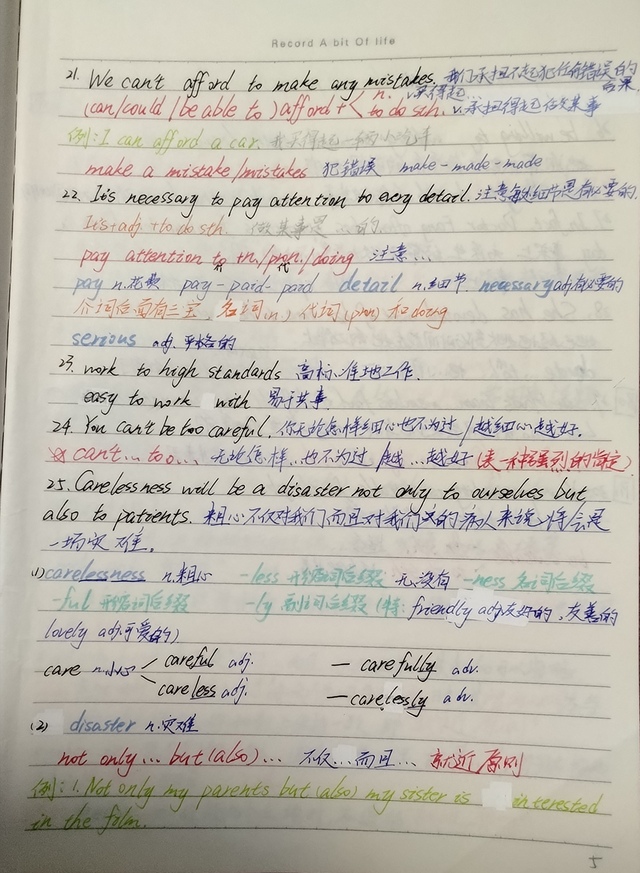 Record A bit Of life
21. We can't afford to make any mistakes. 我们承担不起犯任何错误的
后果
(can/could/be able to) afford + n. 买得起...
to do sth. v.承担得起做某事
例:I can afford a car. 我买得起一辆小汽车
make a mistake/mistakes 犯错误 make-made-made
22. It's necessary to pay attention to every detail. 注意每处细节是有必要的.
It's+adj.+to do sth. 做某事是...的.
pay attention to +n./pron./doing 注意...
介 代
pay n.花费 pay-pard-pard detail n.细节 necessary adj.有必要的
介词后面有三宝, 名词(n.) 代词(pron) 和doing
serious adj.严格的
23. work to high standards 高标准地工作.
easy to work with 易于共事
24. You can't be too careful. 你无论怎样细心也不为过/越细心越好.
can't...too... 无论怎样...也不为过/越...越好(表一种强烈的肯定)
25. Carelessness will be a disaster not only to ourselves but
also to patients. 粗心不仅对我们而且对我们的病人来说将会是
一场灾难.
(1) carelessness n.粗心 -less 形容词后缀 无,没有 -ness 名词后缀
-ful 形容词后缀 -ly 副词后缀 (特: friendly adj.友好的,友善的
lovely adj.可爱的)
care n.小心 careful adj. — carefully adv.
careless adj. — carelessly adv.
(2) disaster n.灾难
not only... but (also)... 不仅...而且... 就近原则
例:1. Not only my parents but (also) my sister is interested
in the film.
5